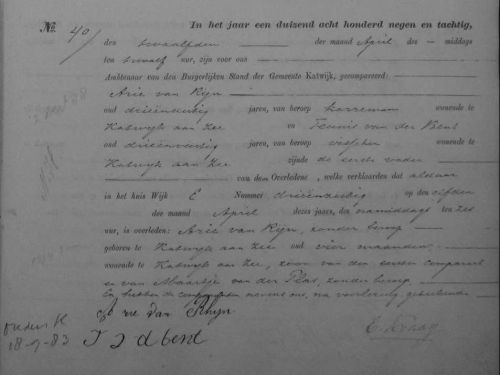 No. 49 In het jaar een duizend acht honderd negen en tachtig,
den twaalfden der maand April des middags
ten twaalf ure, zijn voor ons
Ambtenaar van den Burgerlijken Stand der Gemeente Katwijk, gecompareerd:
Arie van Rijn
oud drieënveertig jaren, van beroep karreman wonende te
Katwijk aan Zee en Teunis van der Bent
oud drieënveertig jaren, van beroep visscher wonende te
Katwijk aan Zee zijnde de eerste vader
van den Overledene, welke verklaarden dat aldaar
in het huis Wijk E Nommer op den elfden
der maand April dezes jaars, des namiddags ten zes
ure, is overleden: Arie van Rijn, zonder beroep
geboren te Katwijk aan Zee oud vier maanden,
wonende te Katwijk aan Zee, zoon van den eersten comparant
en van Maartje van der Plas, zonder beroep.
En hebben de comparanten nevens ons, na voorlezing, geteekend
van Rhijn
18-9-83